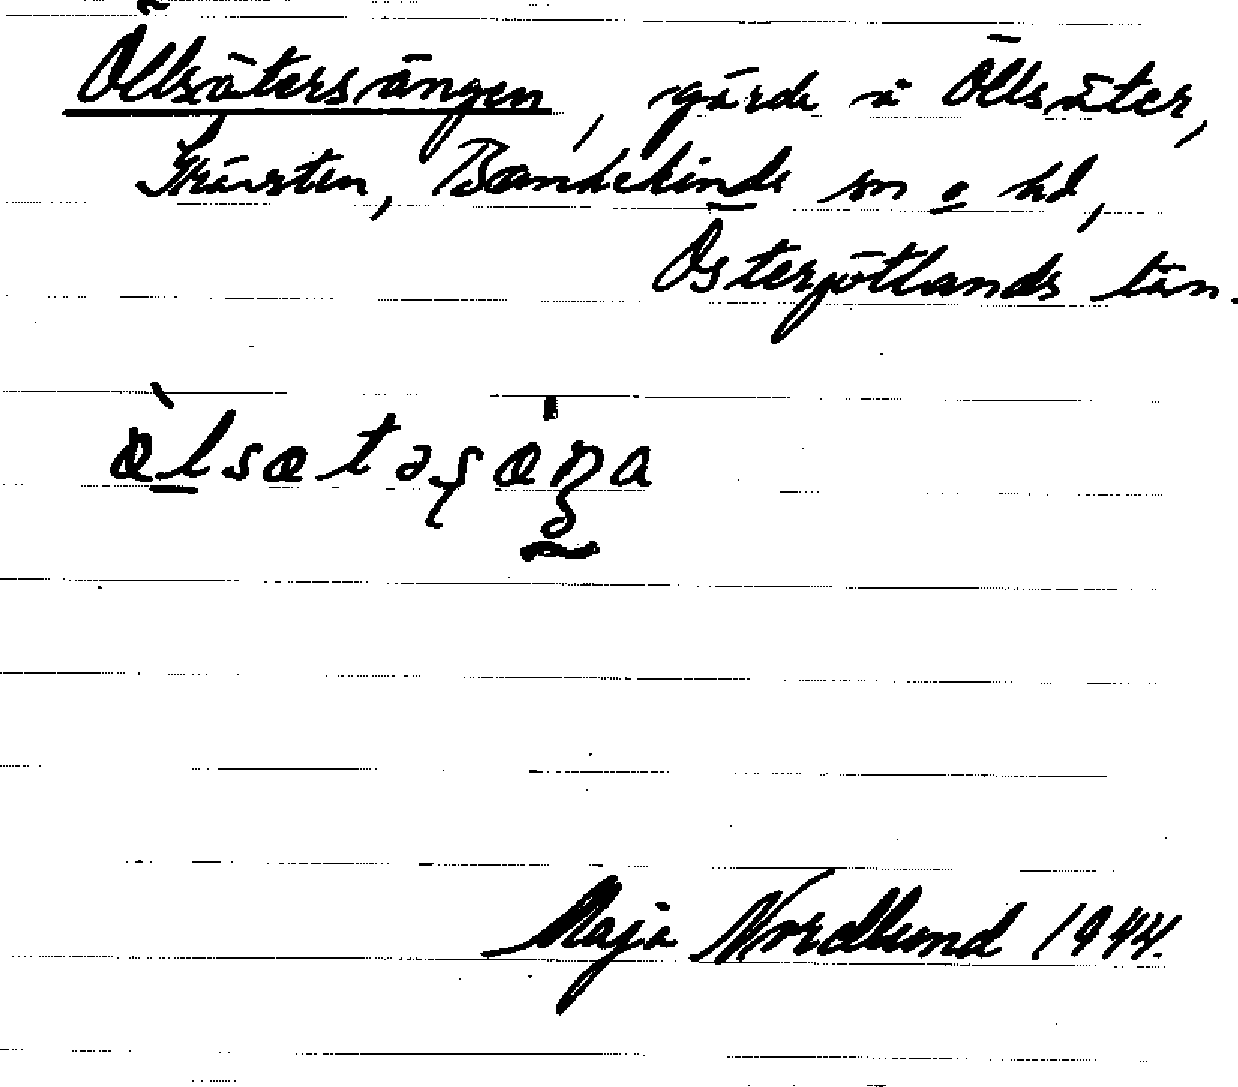 Öllsätersängen, gärde å Öllsäter,
Skärsten, Bankekinds sn o hd,
Östergötlands län.
ælsætəʂæŋa
Maja Nordlund 1944.